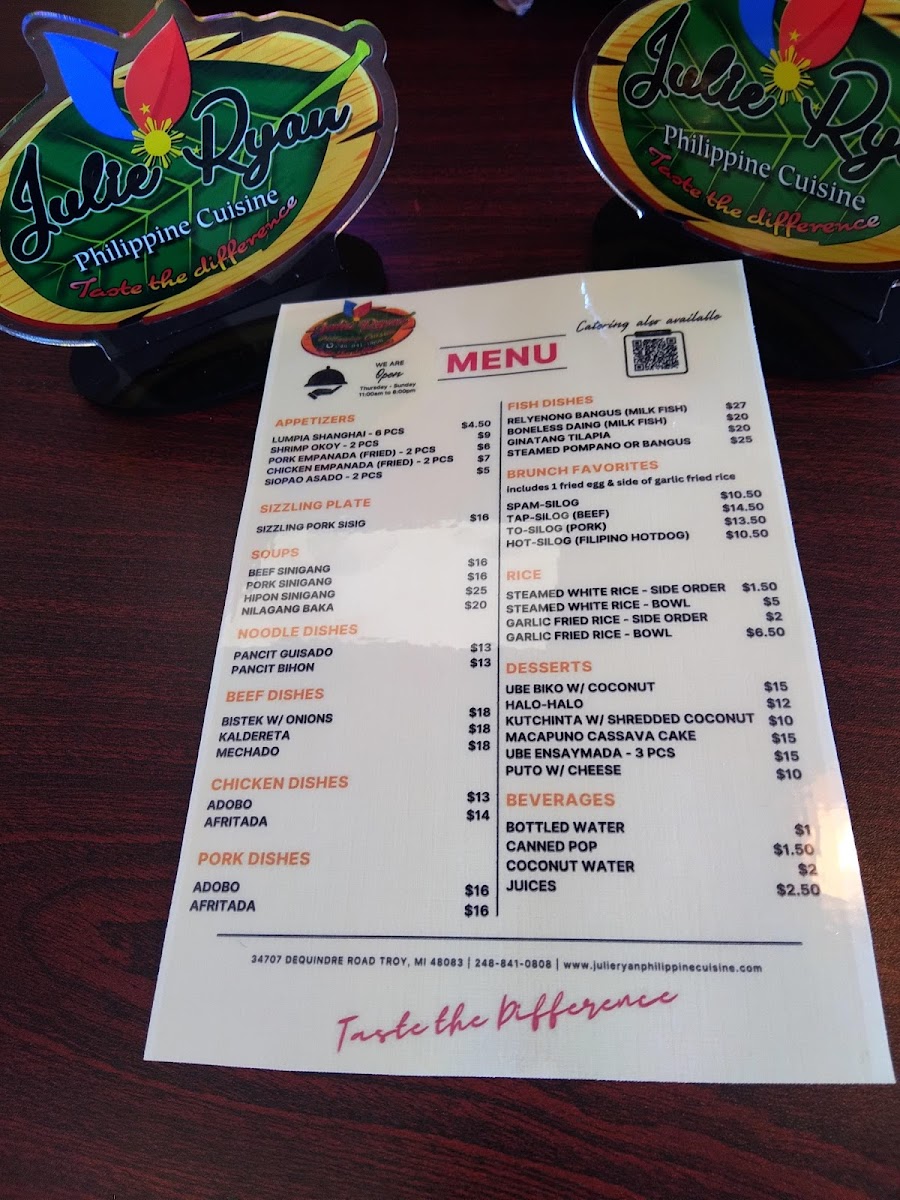 Julie Ryan
Philippine Cuisine
Taste the difference
Julie Ry
Philippine Cuisine
Taste the difference
WE ARE
Open
Thursday - Sunday
11:00am to 8:00pm
MENU
Catering also available
APPETIZERS
LUMPIA SHANGHAI - 6 PCS $4.50
SHRIMP OKOY - 2 PCS $9
PORK EMPANADA (FRIED) - 2 PCS $6
CHICKEN EMPANADA (FRIED) - 2 PCS $7
SIOPAO ASADO - 2 PCS $5
SIZZLING PLATE
SIZZLING PORK SISIG $16
SOUPS
BEEF SINIGANG $16
PORK SINIGANG $16
HIPON SINIGANG $25
NILAGANG BAKA $20
NOODLE DISHES
PANCIT GUISADO $13
PANCIT BIHON $13
BEEF DISHES
BISTEK W/ ONIONS $18
KALDERETA $18
MECHADO $18
CHICKEN DISHES
ADOBO $13
AFRITADA $14
PORK DISHES
ADOBO $16
AFRITADA $16
FISH DISHES
RELYENONG BANGUS (MILK FISH) $27
BONELESS DAING (MILK FISH) $20
GINATANG TILAPIA $20
STEAMED POMPANO OR BANGUS $25
BRUNCH FAVORITES
includes 1 fried egg & side of garlic fried rice
SPAM-SILOG $10.50
TAP-SILOG (BEEF) $14.50
TO-SILOG (PORK) $13.50
HOT-SILOG (FILIPINO HOTDOG) $10.50
RICE
STEAMED WHITE RICE - SIDE ORDER $1.50
STEAMED WHITE RICE - BOWL $5
GARLIC FRIED RICE - SIDE ORDER $2
GARLIC FRIED RICE - BOWL $6.50
DESSERTS
UBE BIKO W/ COCONUT $15
HALO-HALO $12
KUTCHINTA W/ SHREDDED COCONUT $10
MACAPUNO CASSAVA CAKE $15
UBE ENSAYMADA - 3 PCS $15
PUTO W/ CHEESE $10
BEVERAGES
BOTTLED WATER $1
CANNED POP $1.50
COCONUT WATER $2
JUICES $2.50
34707 DEQUINDRE ROAD TROY, MI 48083 | 248-841-0808 | www.julieryanphilippinecuisine.com
Taste the Difference